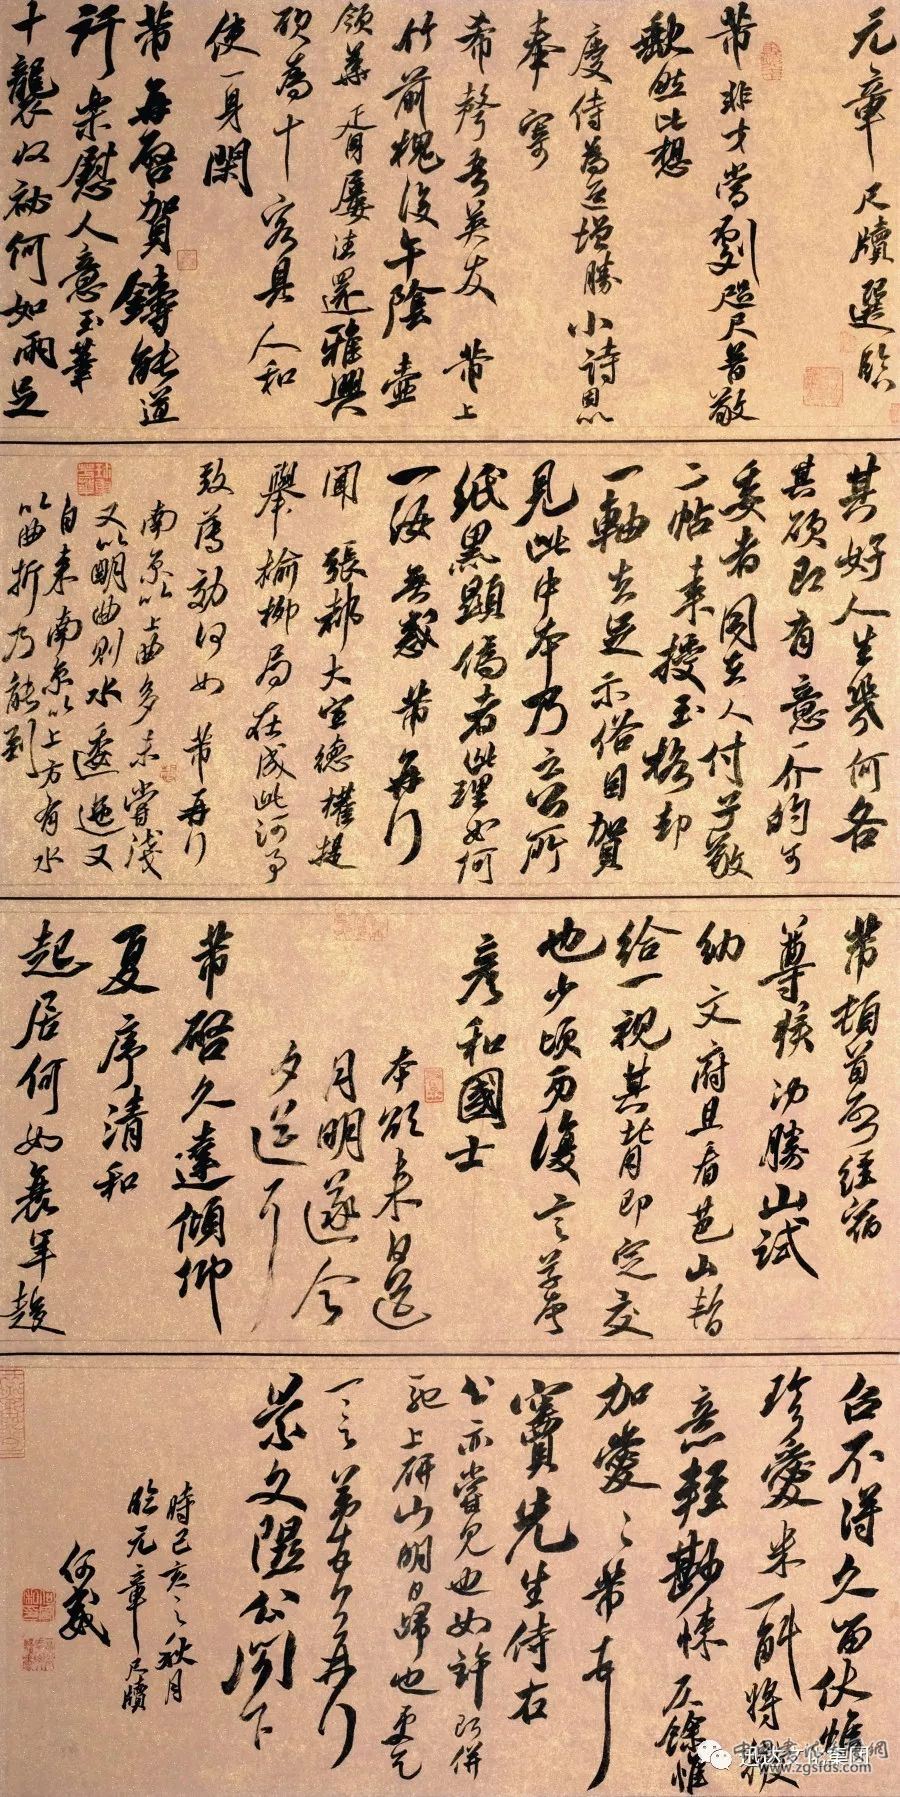 元章尺牘選臨
芾非才當劇咫尺普敬
歉然比想
慶侍為道增勝小詩因以
奉寄
希聲吾英友芾上
竹前槐後午陰壺
領華胥屢法還雅興
欲為十客具人和
使一身閑
芾再啓賀鑄能道
行樂慰人意玉筆
十襲收祕何如兩足
其好人生幾何各
其欲即有意一介的可
委者同去人付子敬
二帖來授玉格却
一軸去足示俗目賀
見此中本乃云所
紙黑顯偽者此理如何
一誨無惑芾再行
聞張都大宣德權提
舉榆柳局在咸此河事
致薦効何如芾再行
南京以上曲多未嘗淺
又以明曲則水逶迤又
自來南京以上方有水
以曲折乃能到
芾頓首再啓經宿
尊候冲勝山試
納文府且看芭山暫
給一視其背即定交
也少頃勿復言芾頓首
彥和國士
本欲來日送
月明遂今
夕送行
芾啓久違傾仰
夏序清和
起居何如衰年趨
召不得久留伏惟
珍愛米一斛將微
意輕尠悚仄餘惟
加愛加愛芾頓首
竇先生侍右
公亦嘗見也如許即併
馳上研山明日歸也更乞
一言芾頓首再行
景文隰公閣下
時己亥之秋月
臨元章尺牘
何
www.zgsfds.com